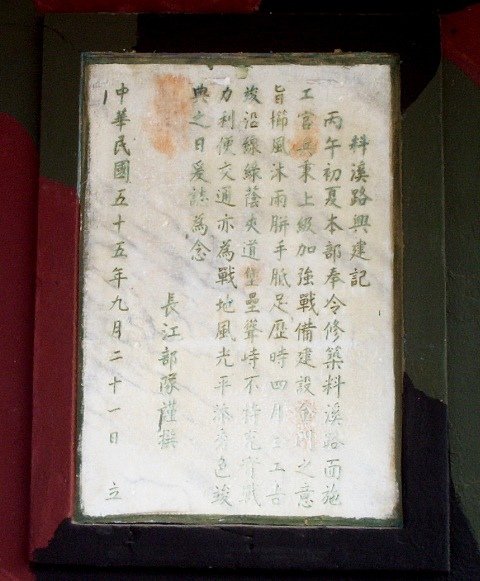 料溪路興建記
丙午初夏本部奉令修築料溪路面施
工官兵秉上級加強戰備建設金門之意
旨櫛風沐雨胼手胝足歷時四月工告
竣沿線綠蔭夾道堡壘聳峙不特充實戰
力利便交通亦為戰地風光平添色竣
典之日爰誌為念
長江部隊謹撰
中華民國五十五年九月二十一日 立